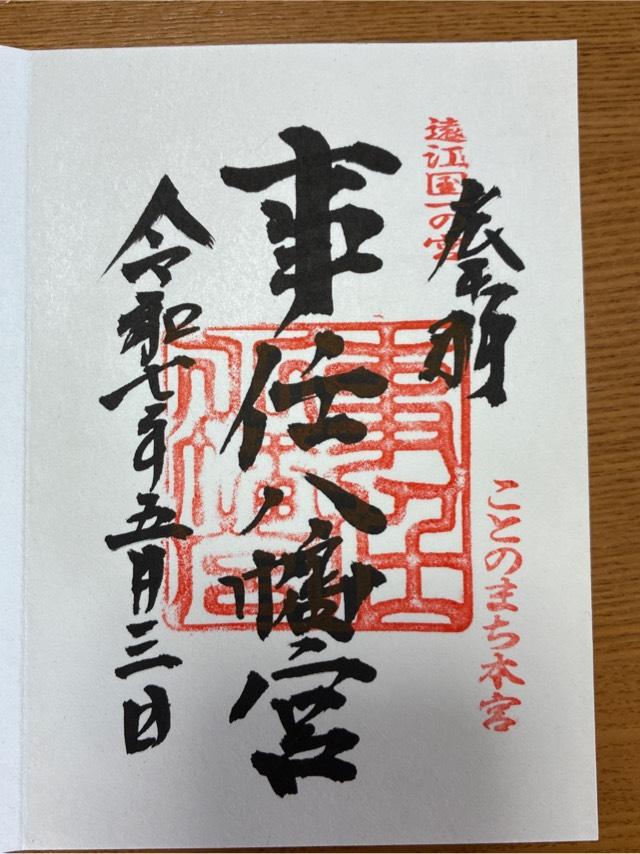 遠江国一の宮
奉拝
ことのまち本宮
事任八幡宮
令和七年五月三日